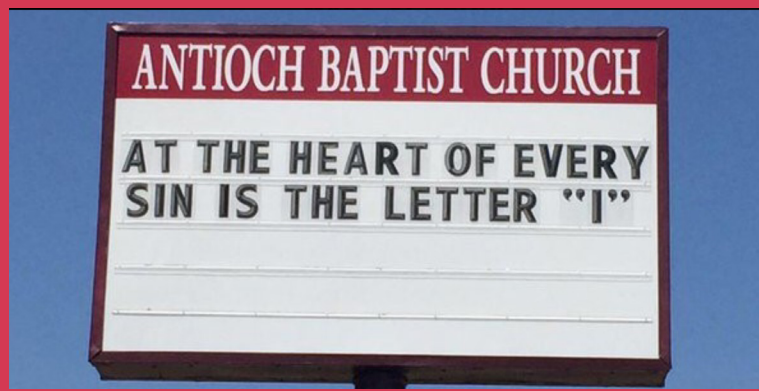 ANTIOCH BAPTIST CHURCH
AT THE HEART OF EVERY
SIN IS THE LETTER “I”